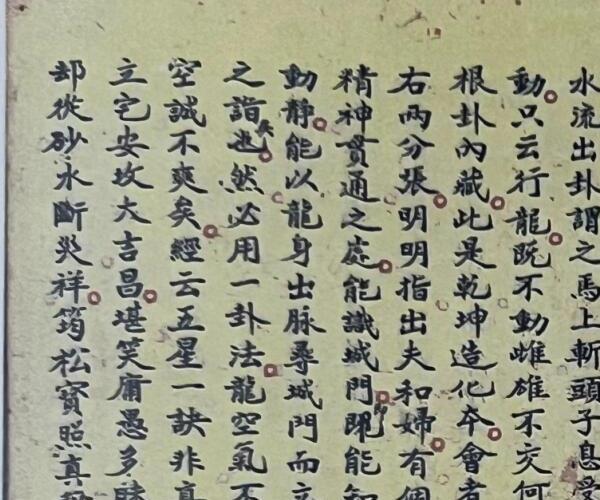 水流出卦謂之馬上斬頭子息受
動只云行龍既不動雌雄不交何
根卦內藏此是乾坤造化夲會者
右兩分張明明指出夫和婦有個
精神貫通之處能識城門即能知
動静能以龍身出脉尋城門而立
之詣也矣然必用一卦法龍空氣不
空誠不爽矣經云五星一訣非真
立宅安坟大吉昌堪笑庸愚多
却從砂水斷災祥筠松寶照真